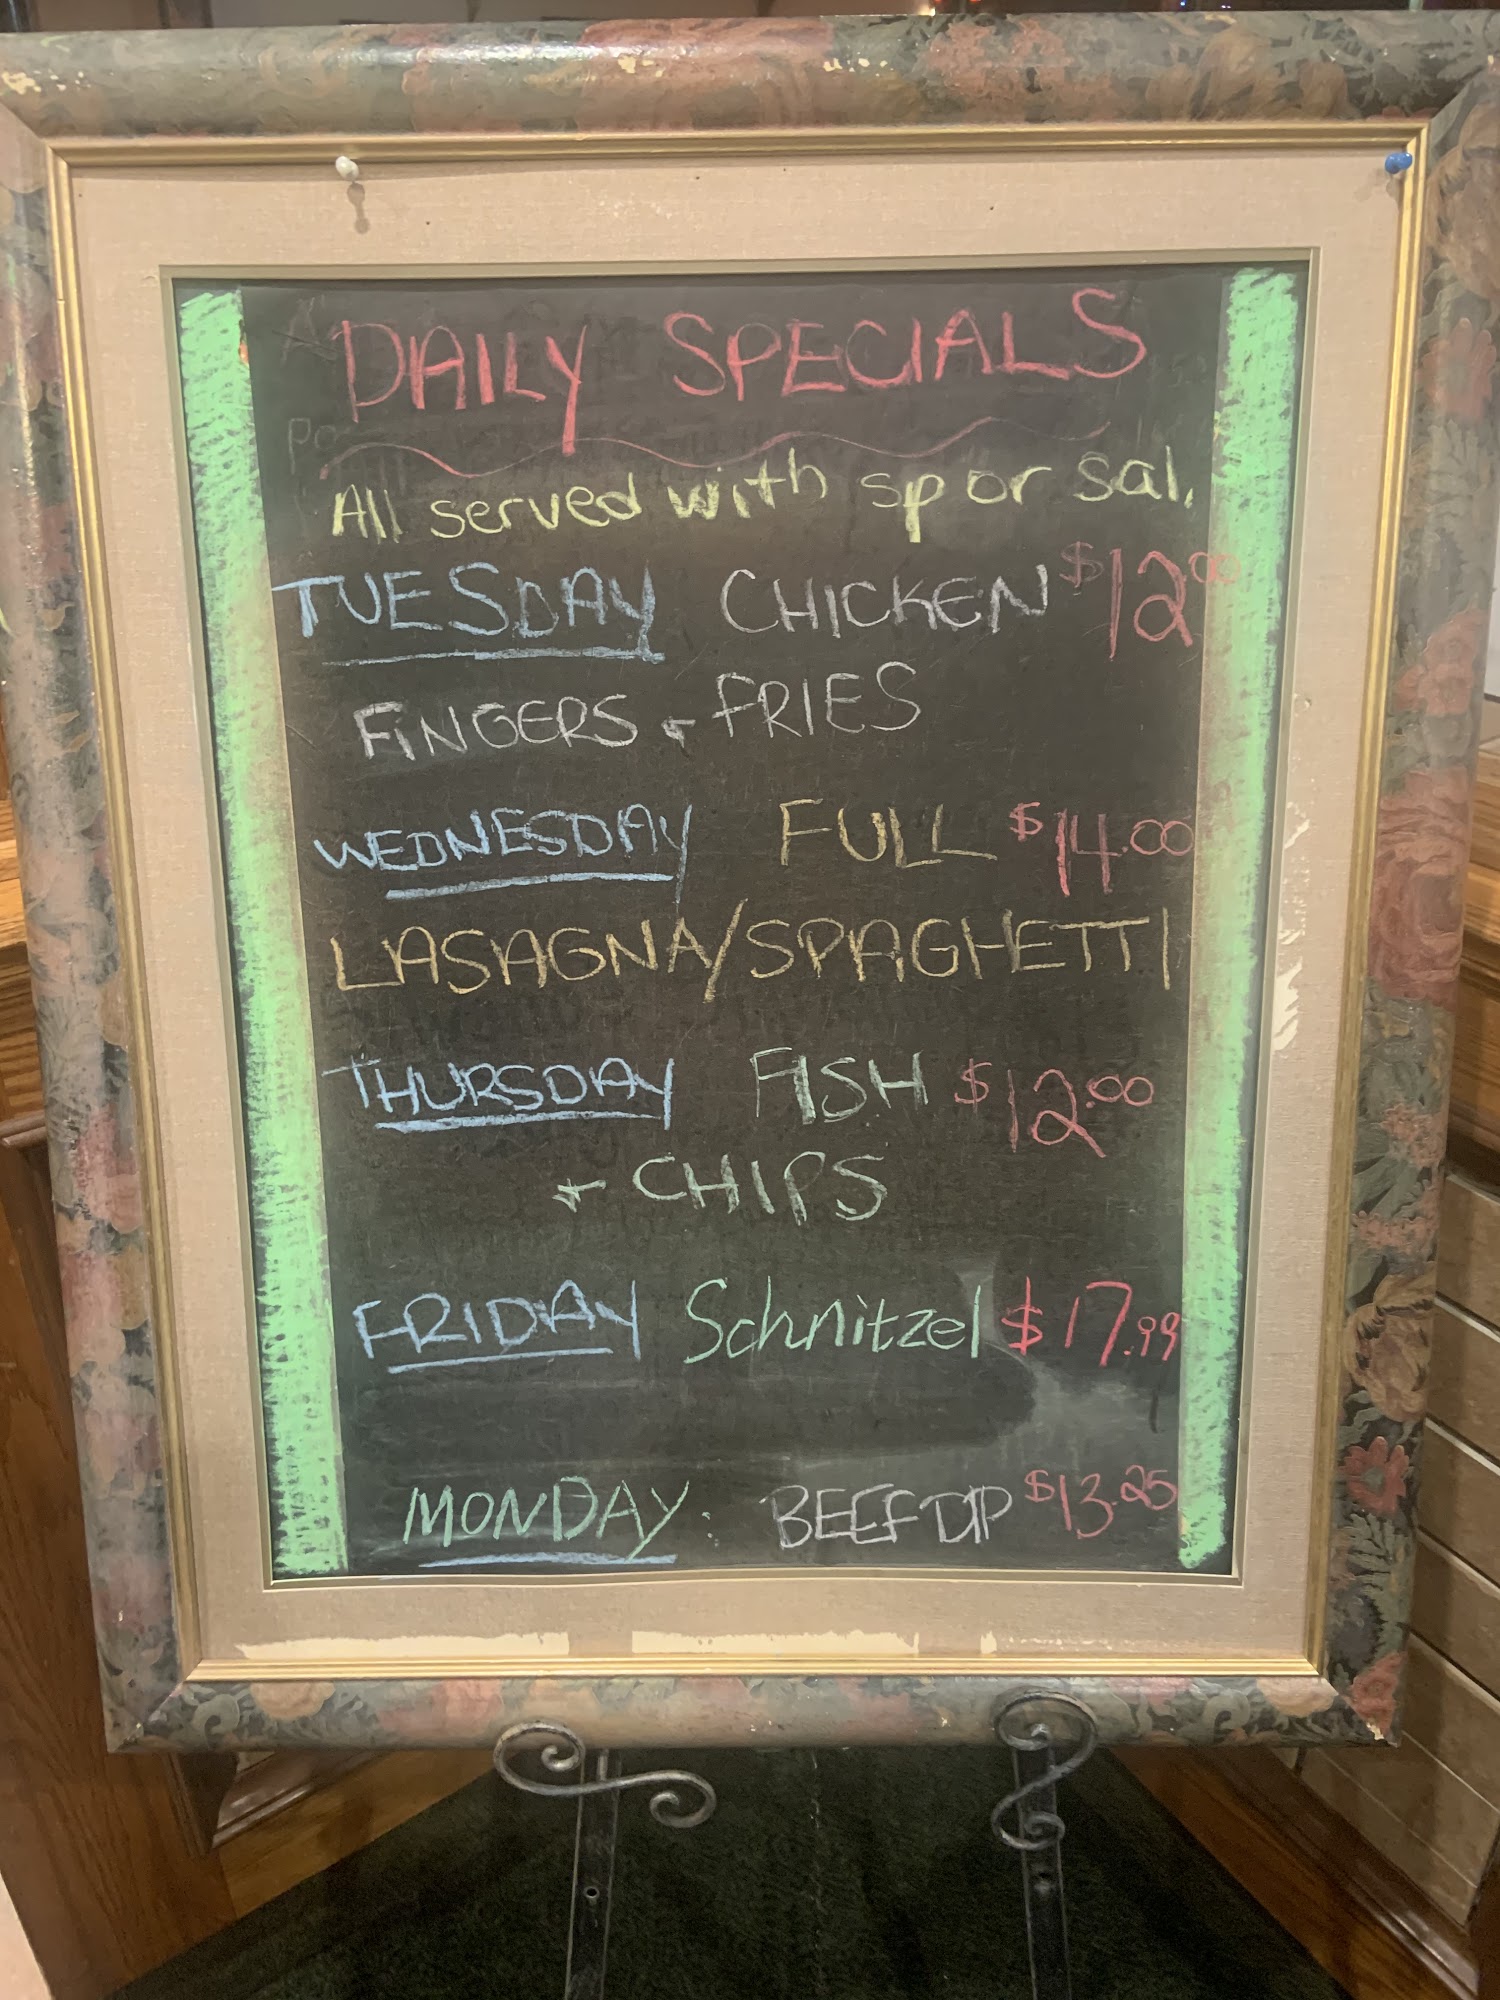 DAILY SPECIALS
All served with sp or sal.
TUESDAY CHICKEN $12.00
FINGERS + FRIES
WEDNESDAY FULL $14.00
LASAGNA/SPAGHETTI
THURSDAY FISH $12.00
+ CHIPS
FRIDAY Schnitzel $17.99
MONDAY: BEEF DIP $13.25